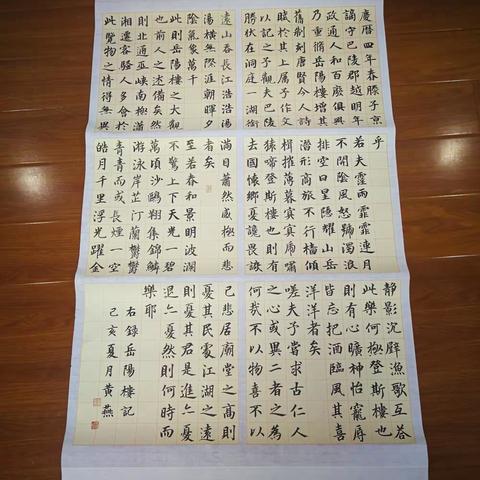 慶曆四年春滕子京
謫守巴陵郡越明年
政通人和百廢具興
乃重脩岳陽樓增其
舊制刻唐賢今人詩
賦於其上属予作文
以記之予觀夫巴陵
勝狀在洞庭一湖銜
遠山吞長江浩浩湯
湯橫無際涯朝暉夕
陰氣象萬千
此則岳陽樓之大觀
也前人之述備矣然
則北通巫峽南極瀟
湘遷客騷人多會於
此覽物之情得無異
乎
若夫霪雨霏霏連月
不開陰風怒號濁浪
排空日星隱耀山岳
潛形商旅不行檣傾
楫摧薄暮冥冥虎嘯
猿啼登斯樓也則有
去國懷鄉憂讒畏譏
滿目蕭然感極而悲
者矣
至若春和景明波瀾
不驚上下天光一碧
萬頃沙鷗翔集錦鱗
游泳岸芷汀蘭鬱鬱
青青而或長煙一空
皓月千里浮光躍金
靜影沉壁漁歌互答
此樂何極登斯樓也
則有心曠神怡寵辱
皆忘把酒臨風其喜
洋洋者矣
嗟夫予嘗求古仁人
之心或異二者之為
何哉不以物喜不以
己悲居廟堂之高則
憂其民處江湖之遠
則憂其君是進亦憂
退亦憂然則何時而
樂耶
右錄岳陽樓記
己亥夏月黃燕